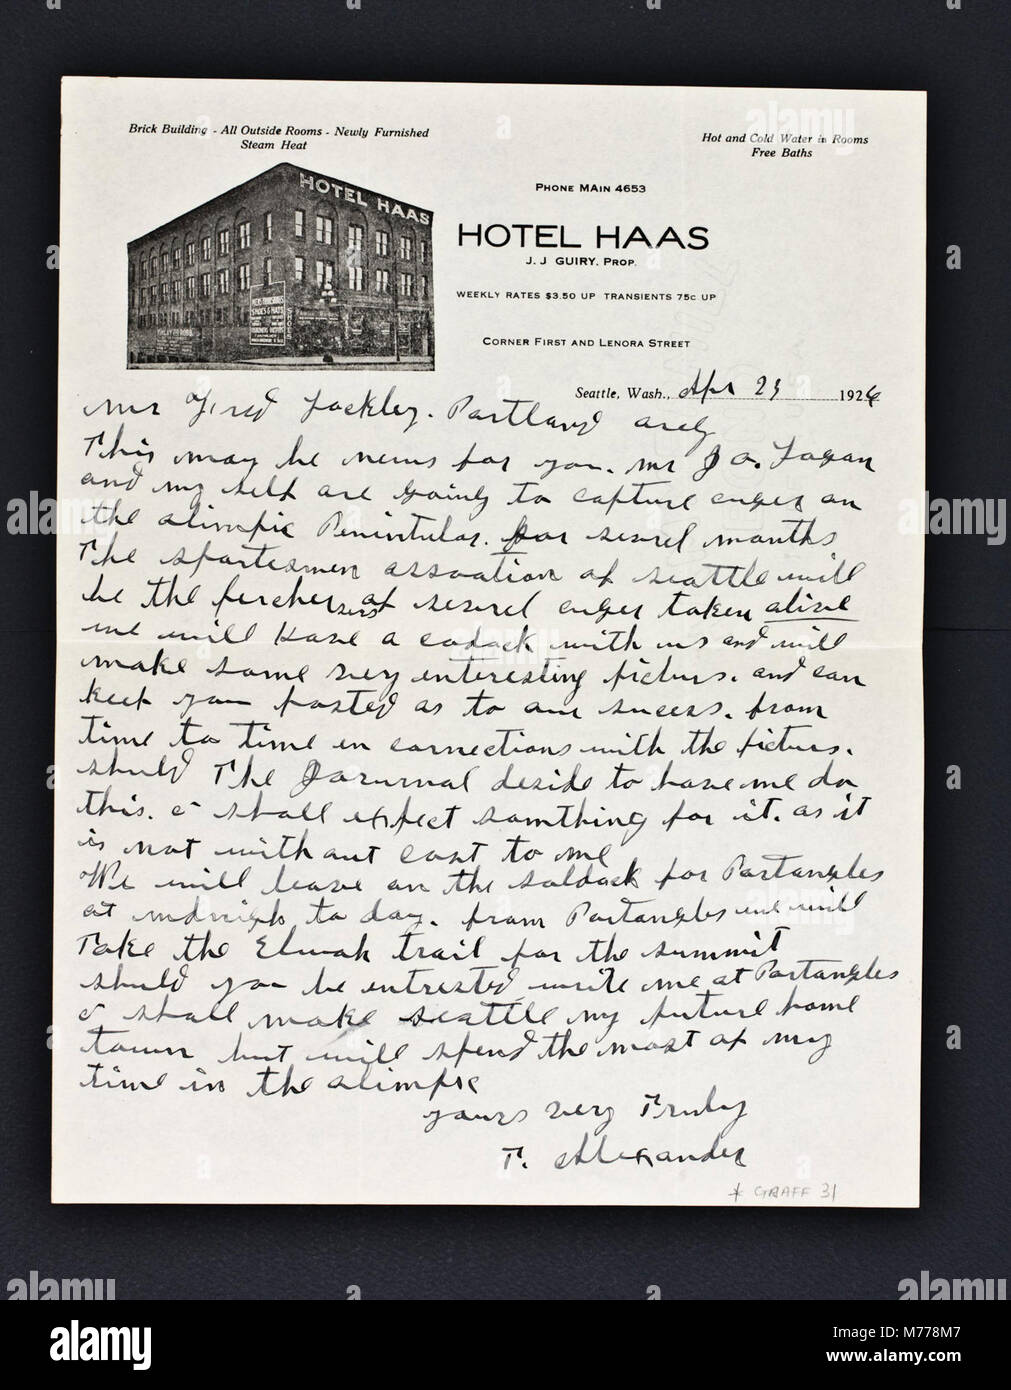 Brick Building - All Outside Rooms - Newly Furnished
Steam Heat
Hot and Cold Water in Rooms
Free Baths
HOTEL HAAS
PHONE MAIN 4653
HOTEL HAAS
J. J GUIRY, PROP.
WEEKLY RATES $3.50 UP TRANSIENTS 75c UP
CORNER FIRST AND LENORA STREET
Seattle, Wash., Apr 23 1924
Mr Fred Lockley. Portland
This may be news for you. Mr J o. Logan
and my self are going to capture cuger on
the olimpic Penintular. for severel months
The sportesmen assoation of seattle will
be the percher sers of severel cuger taken alive
we will have a codack with us and will
make some very enteresting picturs. and can
keep you posted as to our sucess. from
time to time in connections with the picturs.
should The Jorurnal deside to have me do
this. I shall expect somthing for it. as it
is not without cost to me
We will leave on the soldack for Portangles
at midnigh to day. from Portangles we will
take the Elwah trail for the summit
should you be intrested write me at Portangles
I shall make seattle my future home
town but will spend the most of my
time in the olimpic
yours very Truly
T. Alexander
* GRAFF 31
alamy
M778M7
www.alamy.com